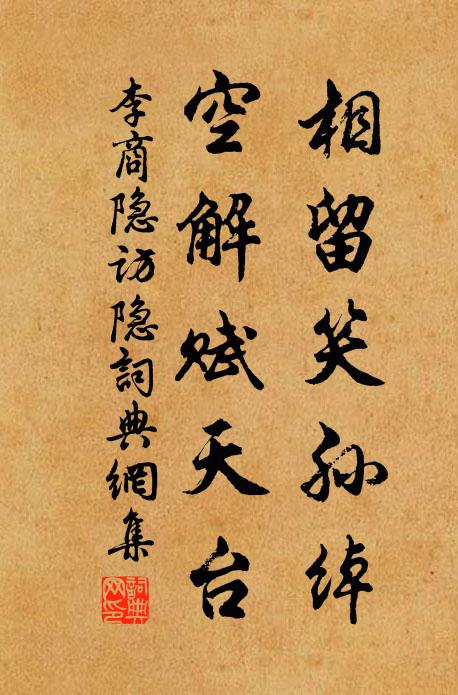 相留笑孙绰
空解赋天台
李商隐访隐詞典網集
詞典
网印